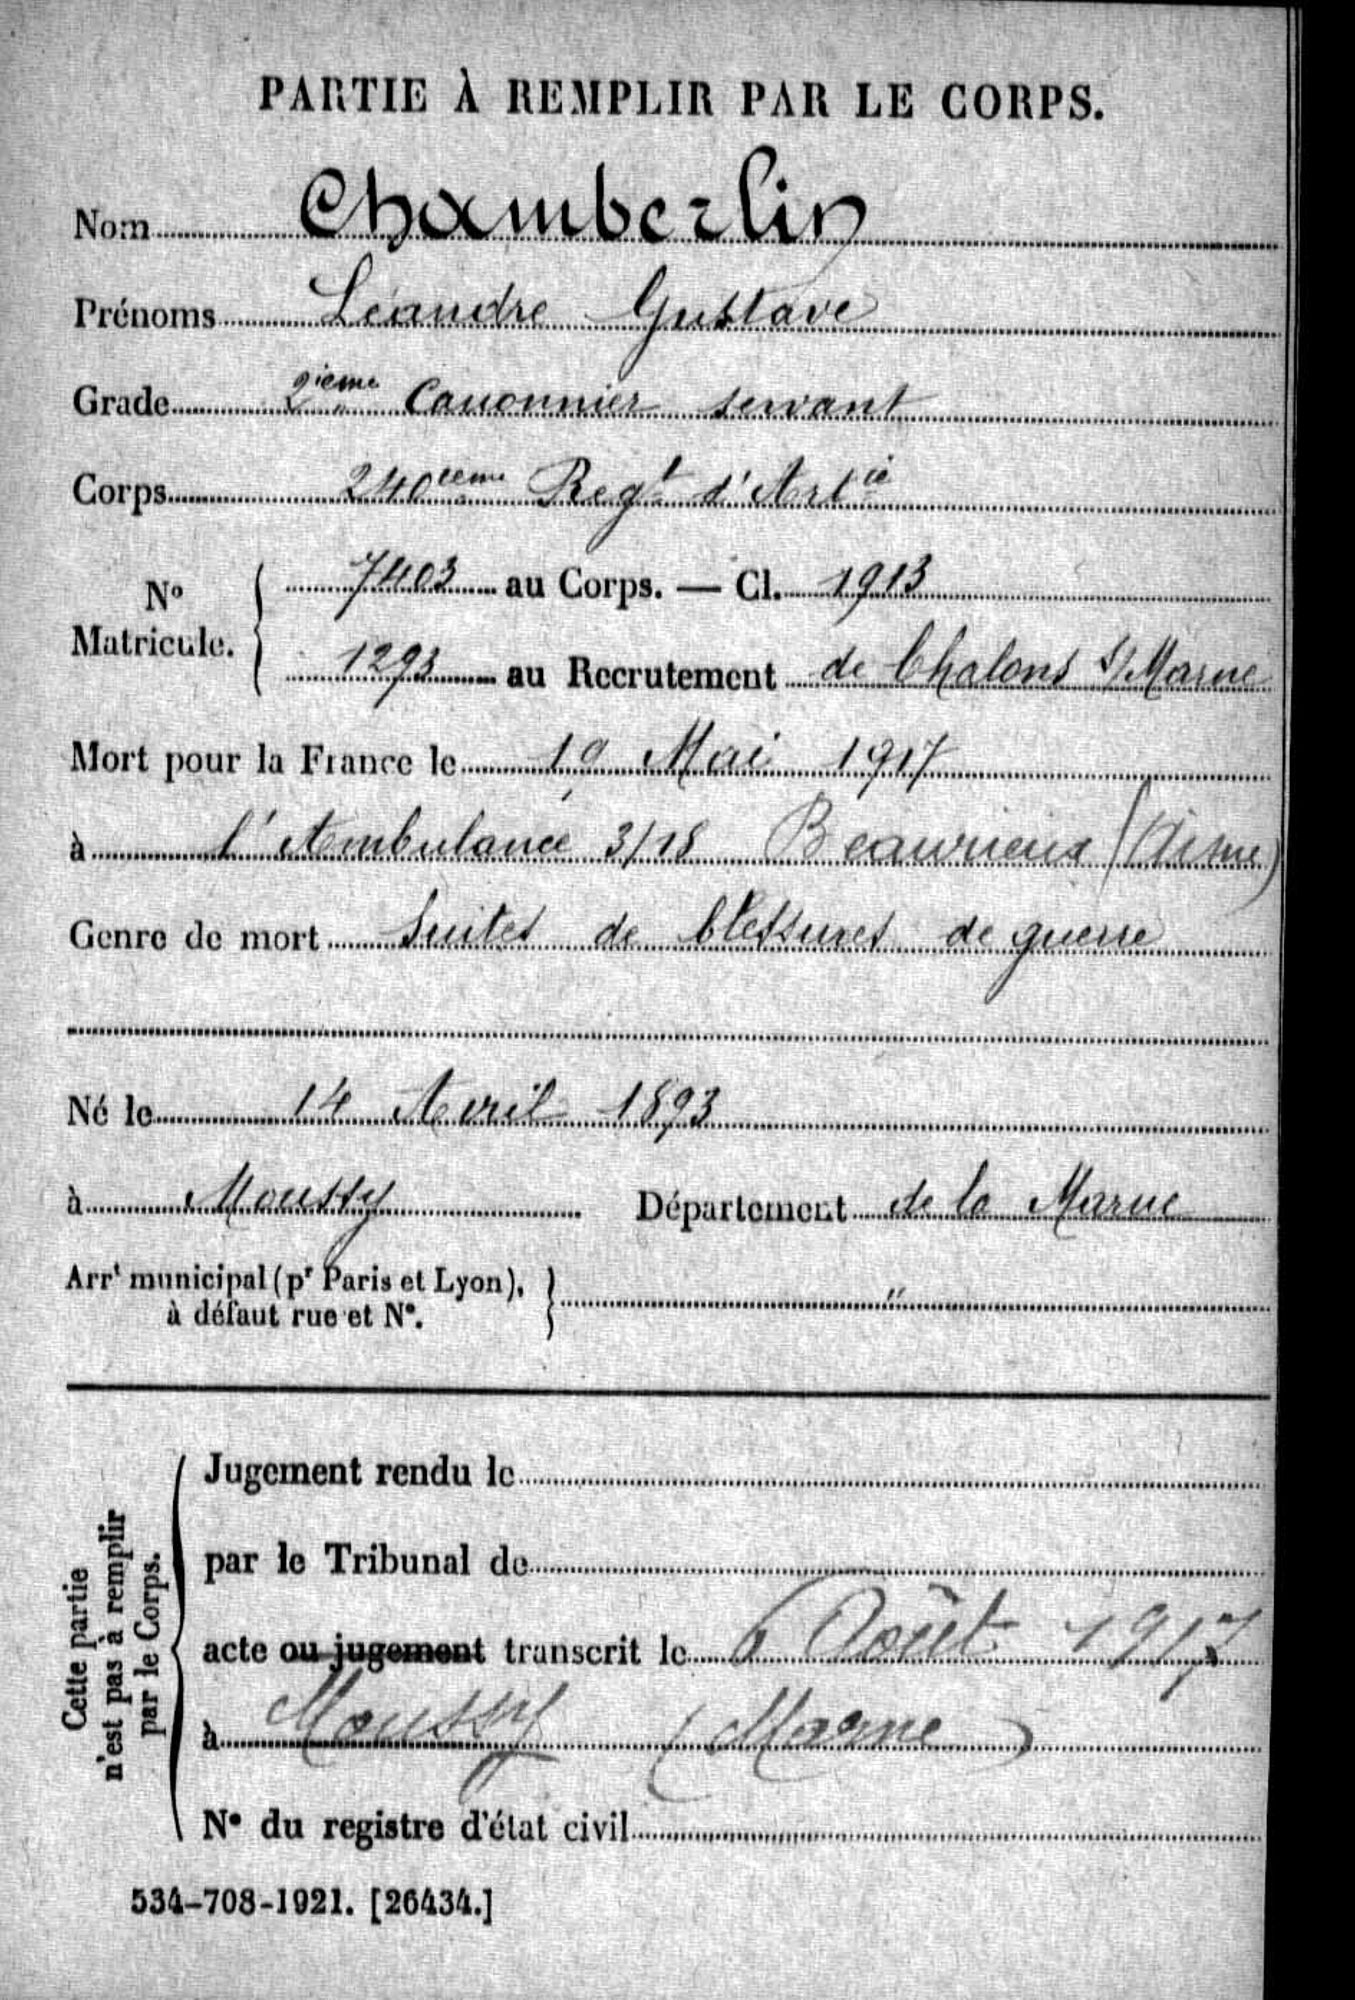 PARTIE À REMPLIR PAR LE CORPS.
Nom Chamberlin
Prénoms Léandre Gustave
Grade 2ième Canonnier servant
Corps 240ième Regt d'Artie
No Matricule. 7403 au Corps. — Cl. 1913
1293 au Recrutement de Chalons s/Marne
Mort pour la France le 19 Mai 1917
à l'Ambulance 3/18 Beaurieux (Aisne)
Genre de mort Suites de blessures de guerre
Né le 14 Avril 1893
à Moussy Département de la Marne
Arrt municipal (pr Paris et Lyon), à défaut rue et No. "
Cette partie n'est pas à remplir par le Corps.
Jugement rendu le
par le Tribunal de
acte ou jugement transcrit le 6 Août 1917
à Moussy (Marne)
No du registre d'état civil
534-708-1921. [26434.]